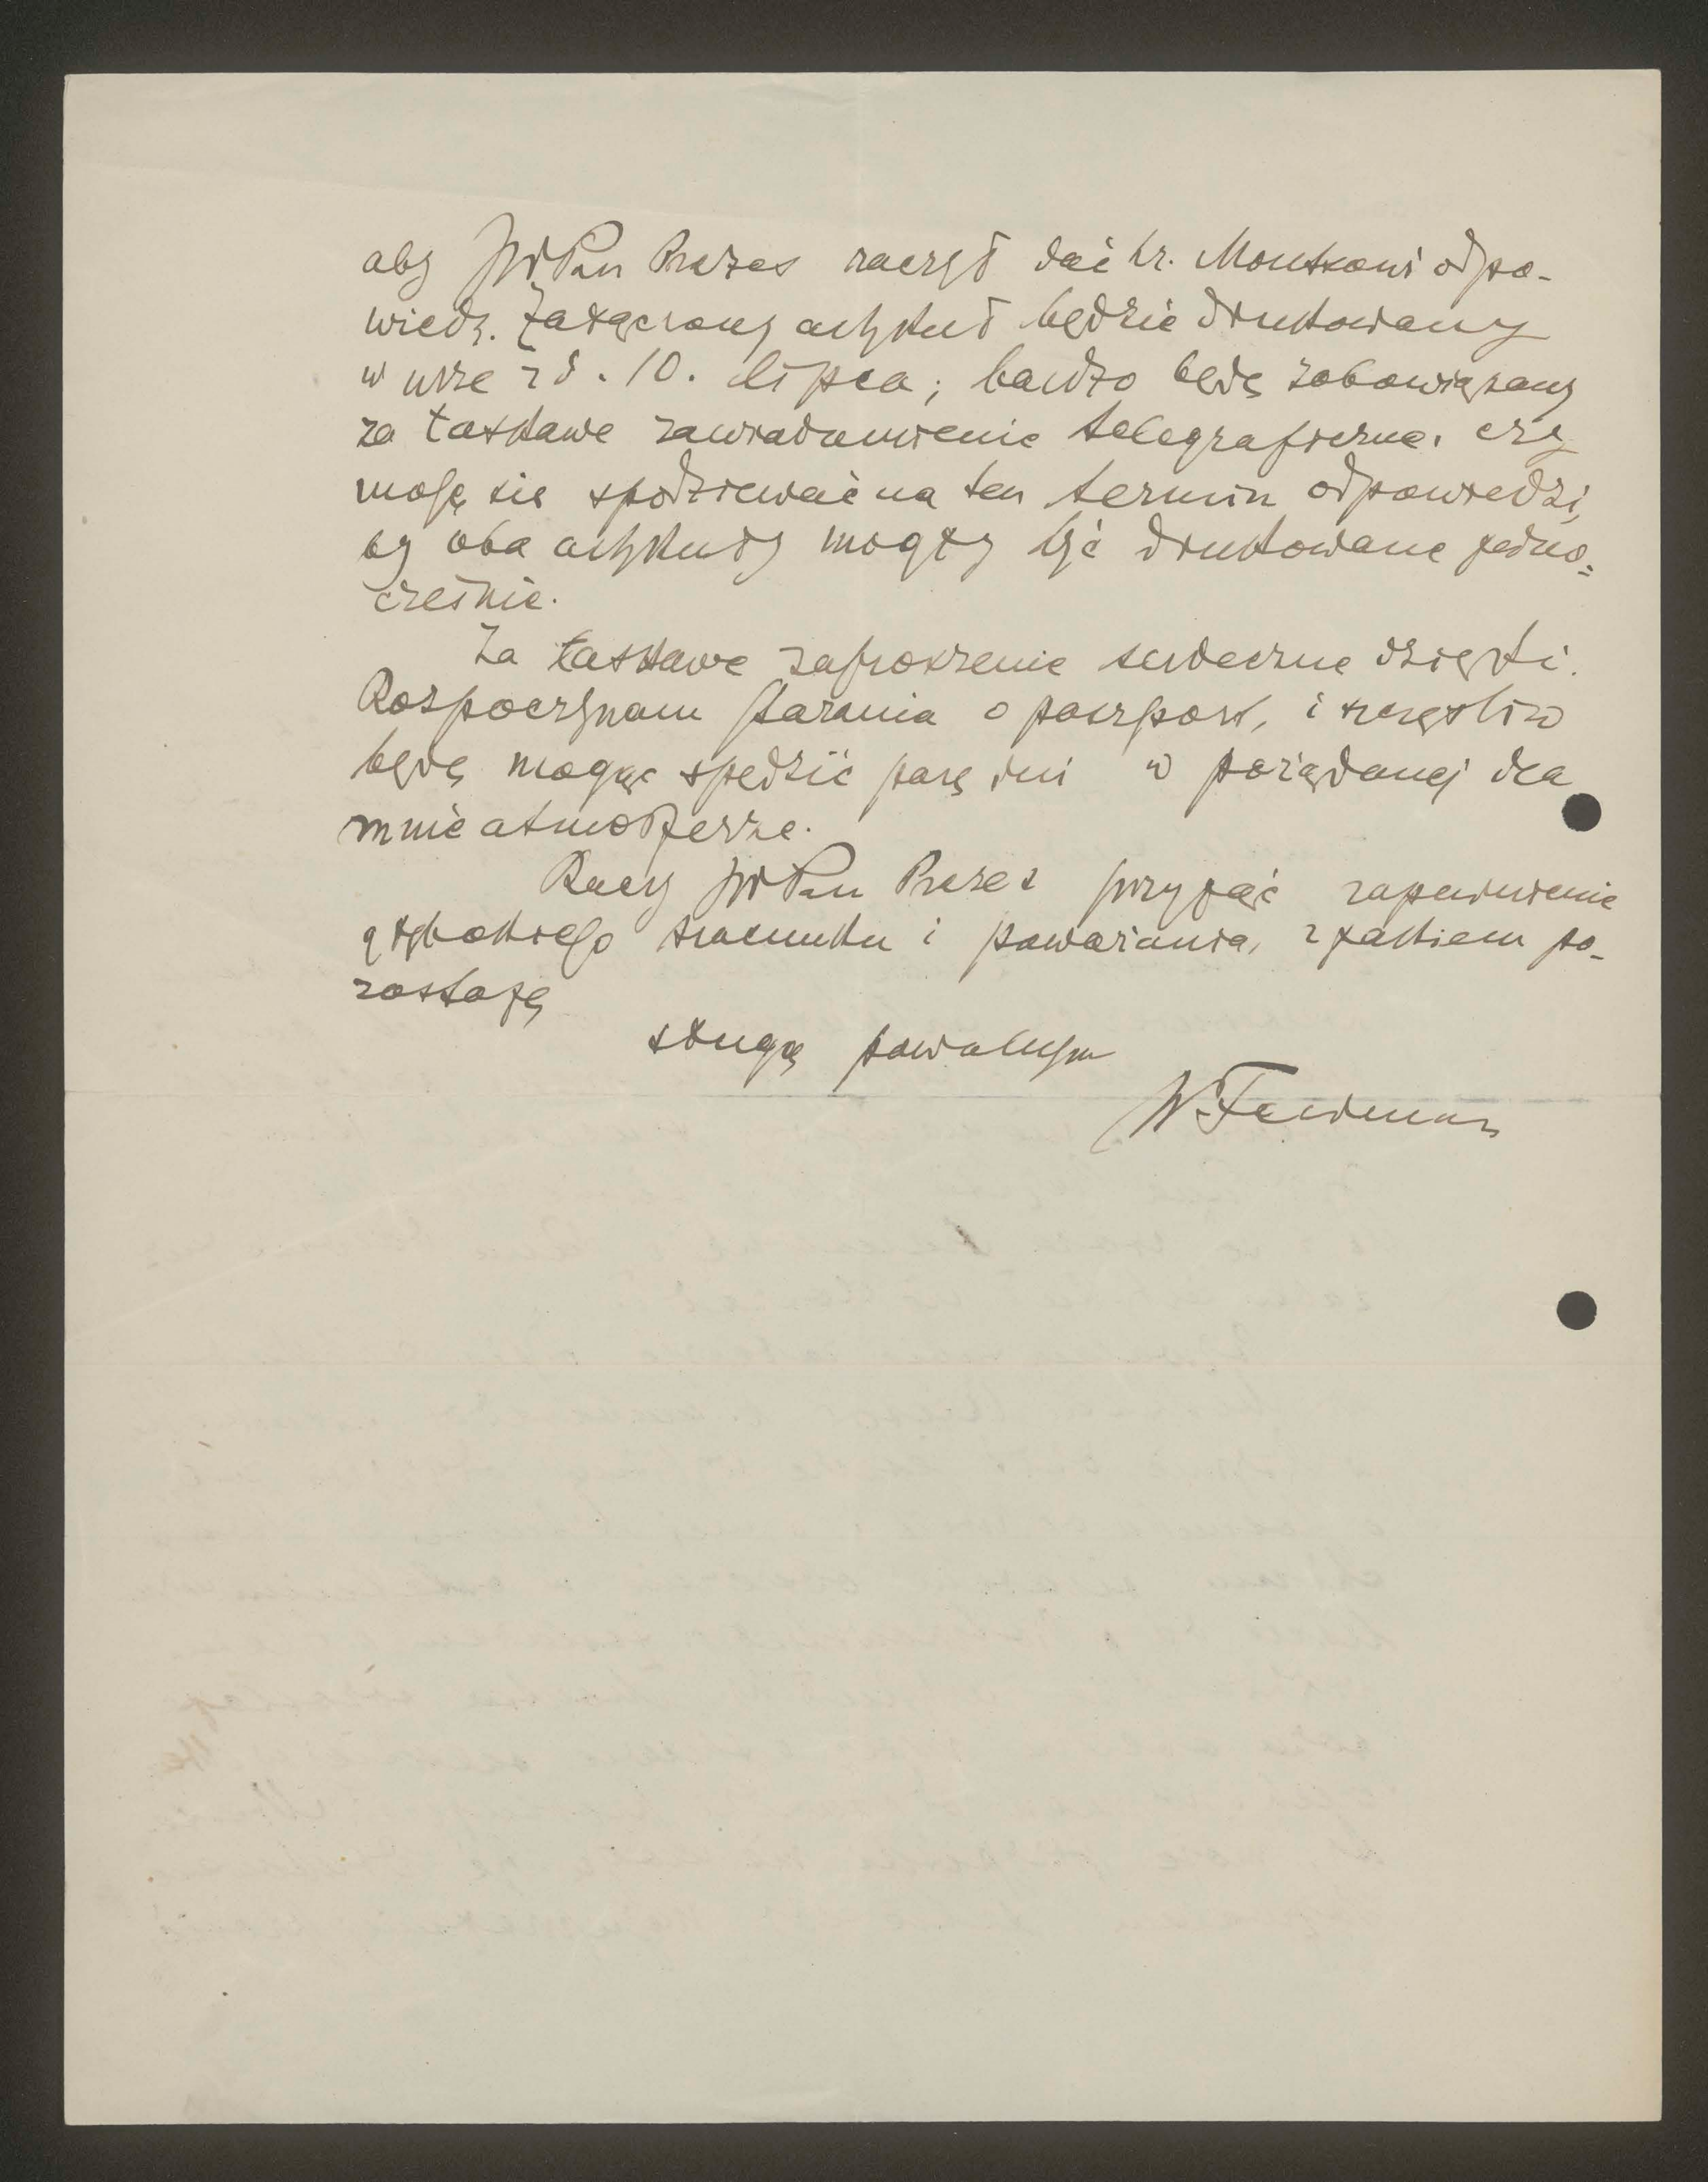 aby JWPan Prezes raczył dać hr. Montzowi odpo-
wiedź. Załączony artykuł będzie drukowany
w nrze z d. 10. lipca; bardzo będę zobowiązany
za łaskawe zawiadomienie telegraficzne, czy
mogę się spodziewać na ten termin odpowiedzi,
by oba artykuły mogły być drukowane jedno=
cześnie.
Za łaskawe zaproszenie serdeczne dzięki.
Rozpoczynam starania o paszport, i szczęśliw
będę mogąc spędzić parę dni w pożądanej dla
mnie atmosferze.
Raczy JWPan Prezes przyjąć zapewnienie
głębokiego szacunku i poważania, z jakiem po-
zostaję
sługą powolnym
W. Feldman